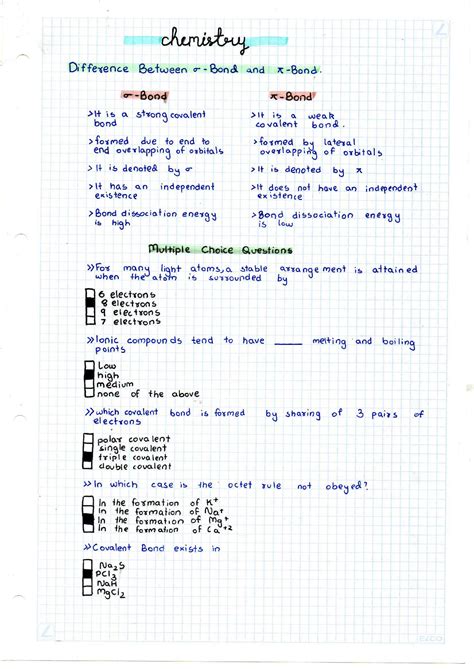 chemistry
Difference Between σ-Bond and π-Bond.
σ-Bond
π-Bond
>It is a strong covalent
bond
>It is a weak
covalent bond.
>formed due to end to
end overlapping of orbitals
>formed by lateral
overlapping of orbitals
>It is denoted by σ
>It is denoted by π
>It has an independent
existence
>It does not have an independent
existence
>Bond dissociation energy
is high
>Bond dissociation energy
is low
Multiple Choice Questions
»For many light atoms, a stable arrangement is attained
when the atom is surrounded by
6 electrons
8 electrons
9 electrons
7 electrons
»Ionic compounds tend to have ____ melting and boiling
points
Low
high
medium
none of the above
»which covalent bond is formed by sharing of 3 pairs of
electrons
polar covalent
single covalent
triple covalent
double covalent
»In which case is the octet rule not obeyed?
In the formation of K⁺
In the formation of Na⁺
In the formation of Mg⁺
In the formation of Ca⁺²
»Covalent Bond exists in
Na₂S
PCl₃
NaH
MgCl₂